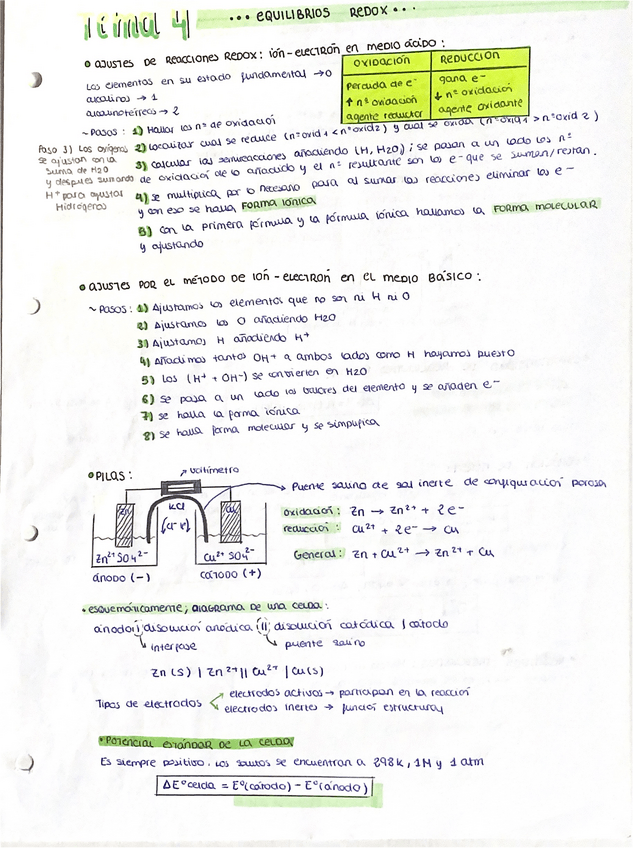 Tema 4
... EQUILIBRIOS REDOX ...
• AJUSTES DE REACCIONES REDOX: IÓN-ELECTRÓN EN MEDIO ÁCIDO:
OXIDACIÓN | REDUCCIÓN
Perdida de e⁻ | gana e⁻
↑ nº oxidación | ↓ nº oxidación
agente reductor | agente oxidante
Los elementos en su estado fundamental → 0
alcalinos → 1
alcalinotérreos → 2
~ Pasos: 1) Hallar los nº de oxidación
2) Localizar cual se reduce (nºoxid 1 < nºoxid 2) y cual se oxida (nºoxid 1 > nºoxid 2)
3) calcular las semireacciones añadiendo (H, H2O); se pasan a un lado los nº
de oxidación de lo añadido y el nº resultante son los e⁻ que se suman/restan.
4) se multiplica por lo necesario para al sumar las reacciones eliminar los e⁻
y con eso se halla FORMA IÓNICA
5) con la primera fórmula y la fórmula iónica hallamos la FORMA MOLECULAR
y ajustando
Paso 3) Los oxígenos
se ajustan con la
suma de H2O
y después sumando
H⁺ para ajustar
Hidrógenos
• AJUSTES POR EL MÉTODO DE IÓN-ELECTRÓN EN EL MEDIO BÁSICO:
~ Pasos: 1) Ajustamos los elementos que no son ni H ni O
2) Ajustamos los O añadiendo H2O
3) Ajustamos H añadiendo H⁺
4) Añadimos tantos OH⁻ a ambos lados como H hayamos puesto
5) Los (H⁺ + OH⁻) se convierten en H2O
6) se pasa a un lado los valores del elemento y se añaden e⁻
7) se halla la forma iónica
8) se halla forma molecular y se simplifica
• PILAS:
voltímetro
Puente salino de sal inerte de configuración porosa
Zn
KCl
Cu
Zn²⁺ SO4²⁻
Cu²⁺ SO4²⁻
ánodo (-)
cátodo (+)
oxidación: Zn → Zn²⁺ + 2e⁻
reducción: Cu²⁺ + 2e⁻ → Cu
General: Zn + Cu²⁺ → Zn²⁺ + Cu
• esquemáticamente, DIAGRAMA DE UNA CELDA:
ánodo | disolución anódica || disolución catódica | cátodo
interfase
puente salino
Zn (s) | Zn²⁺ || Cu²⁺ | Cu(s)
Tipos de electrodos
electrodos activos → participan en la reacción
electrodos inertes → función estructural
• POTENCIAL ESTÁNDAR DE LA CELDA
Es siempre positivo. Los solutos se encuentran a 298k, 1M y 1 atm
ΔE°celda = E°(cátodo) - E°(ánodo)